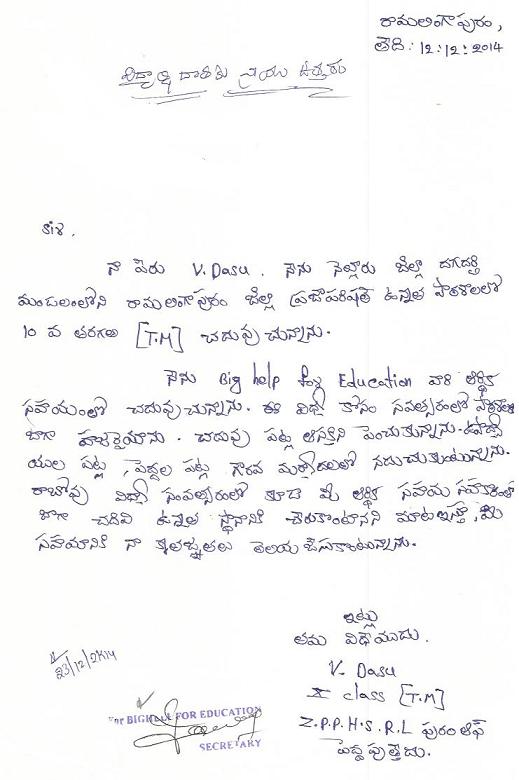 రామలింగాపురం,
తేది: 12:12:2014
విద్యార్థి దాతకు వ్రాయు ఉత్తరం
sir.
నా పేరు V. Dasu. నేను నెల్లూరు జిల్లా దగదర్తి
మండలంలోని రామలింగాపురం జిల్లా ప్రజాపరిషత్ ఉన్నత పాఠశాలలో
10 వ తరగతి [T.M] చదువుచున్నాను.
నేను Big help for Education వారి ఆర్థిక
సహాయంతో చదువుచున్నాను. ఈ విద్యా కోసం సంవత్సరంలో పాఠశాలకు
బాగా హాజరైయాను. చదువు పట్ల ఆసక్తిని పెంచుకున్నాను. ఉపాధ్యా
యుల పట్ల, పెద్దల పట్ల గౌరవ మర్యాదలలో నడుచుకుంటున్నాను.
రాబోవు విద్యా సంవత్సరంలో కూడా మీ ఆర్థిక సహాయ సహకారంతో
బాగా చదివి ఉన్నత స్థానానికి చేరుకుంటానని మాట ఇస్తూ, మీ
సహయానికి నా కృతజ్ఞతలు తెలియ జేసుకుంటున్నాను.
ఇట్లు
తమ విధేయుడు.
V. Dasu
X class [T.M]
Z.P.P.H.S. R.L పురం ఆఫ్
పెద్దపుత్తేడు.
23/12/2K14
For BIGHELP FOR EDUCATION
SECRETARY